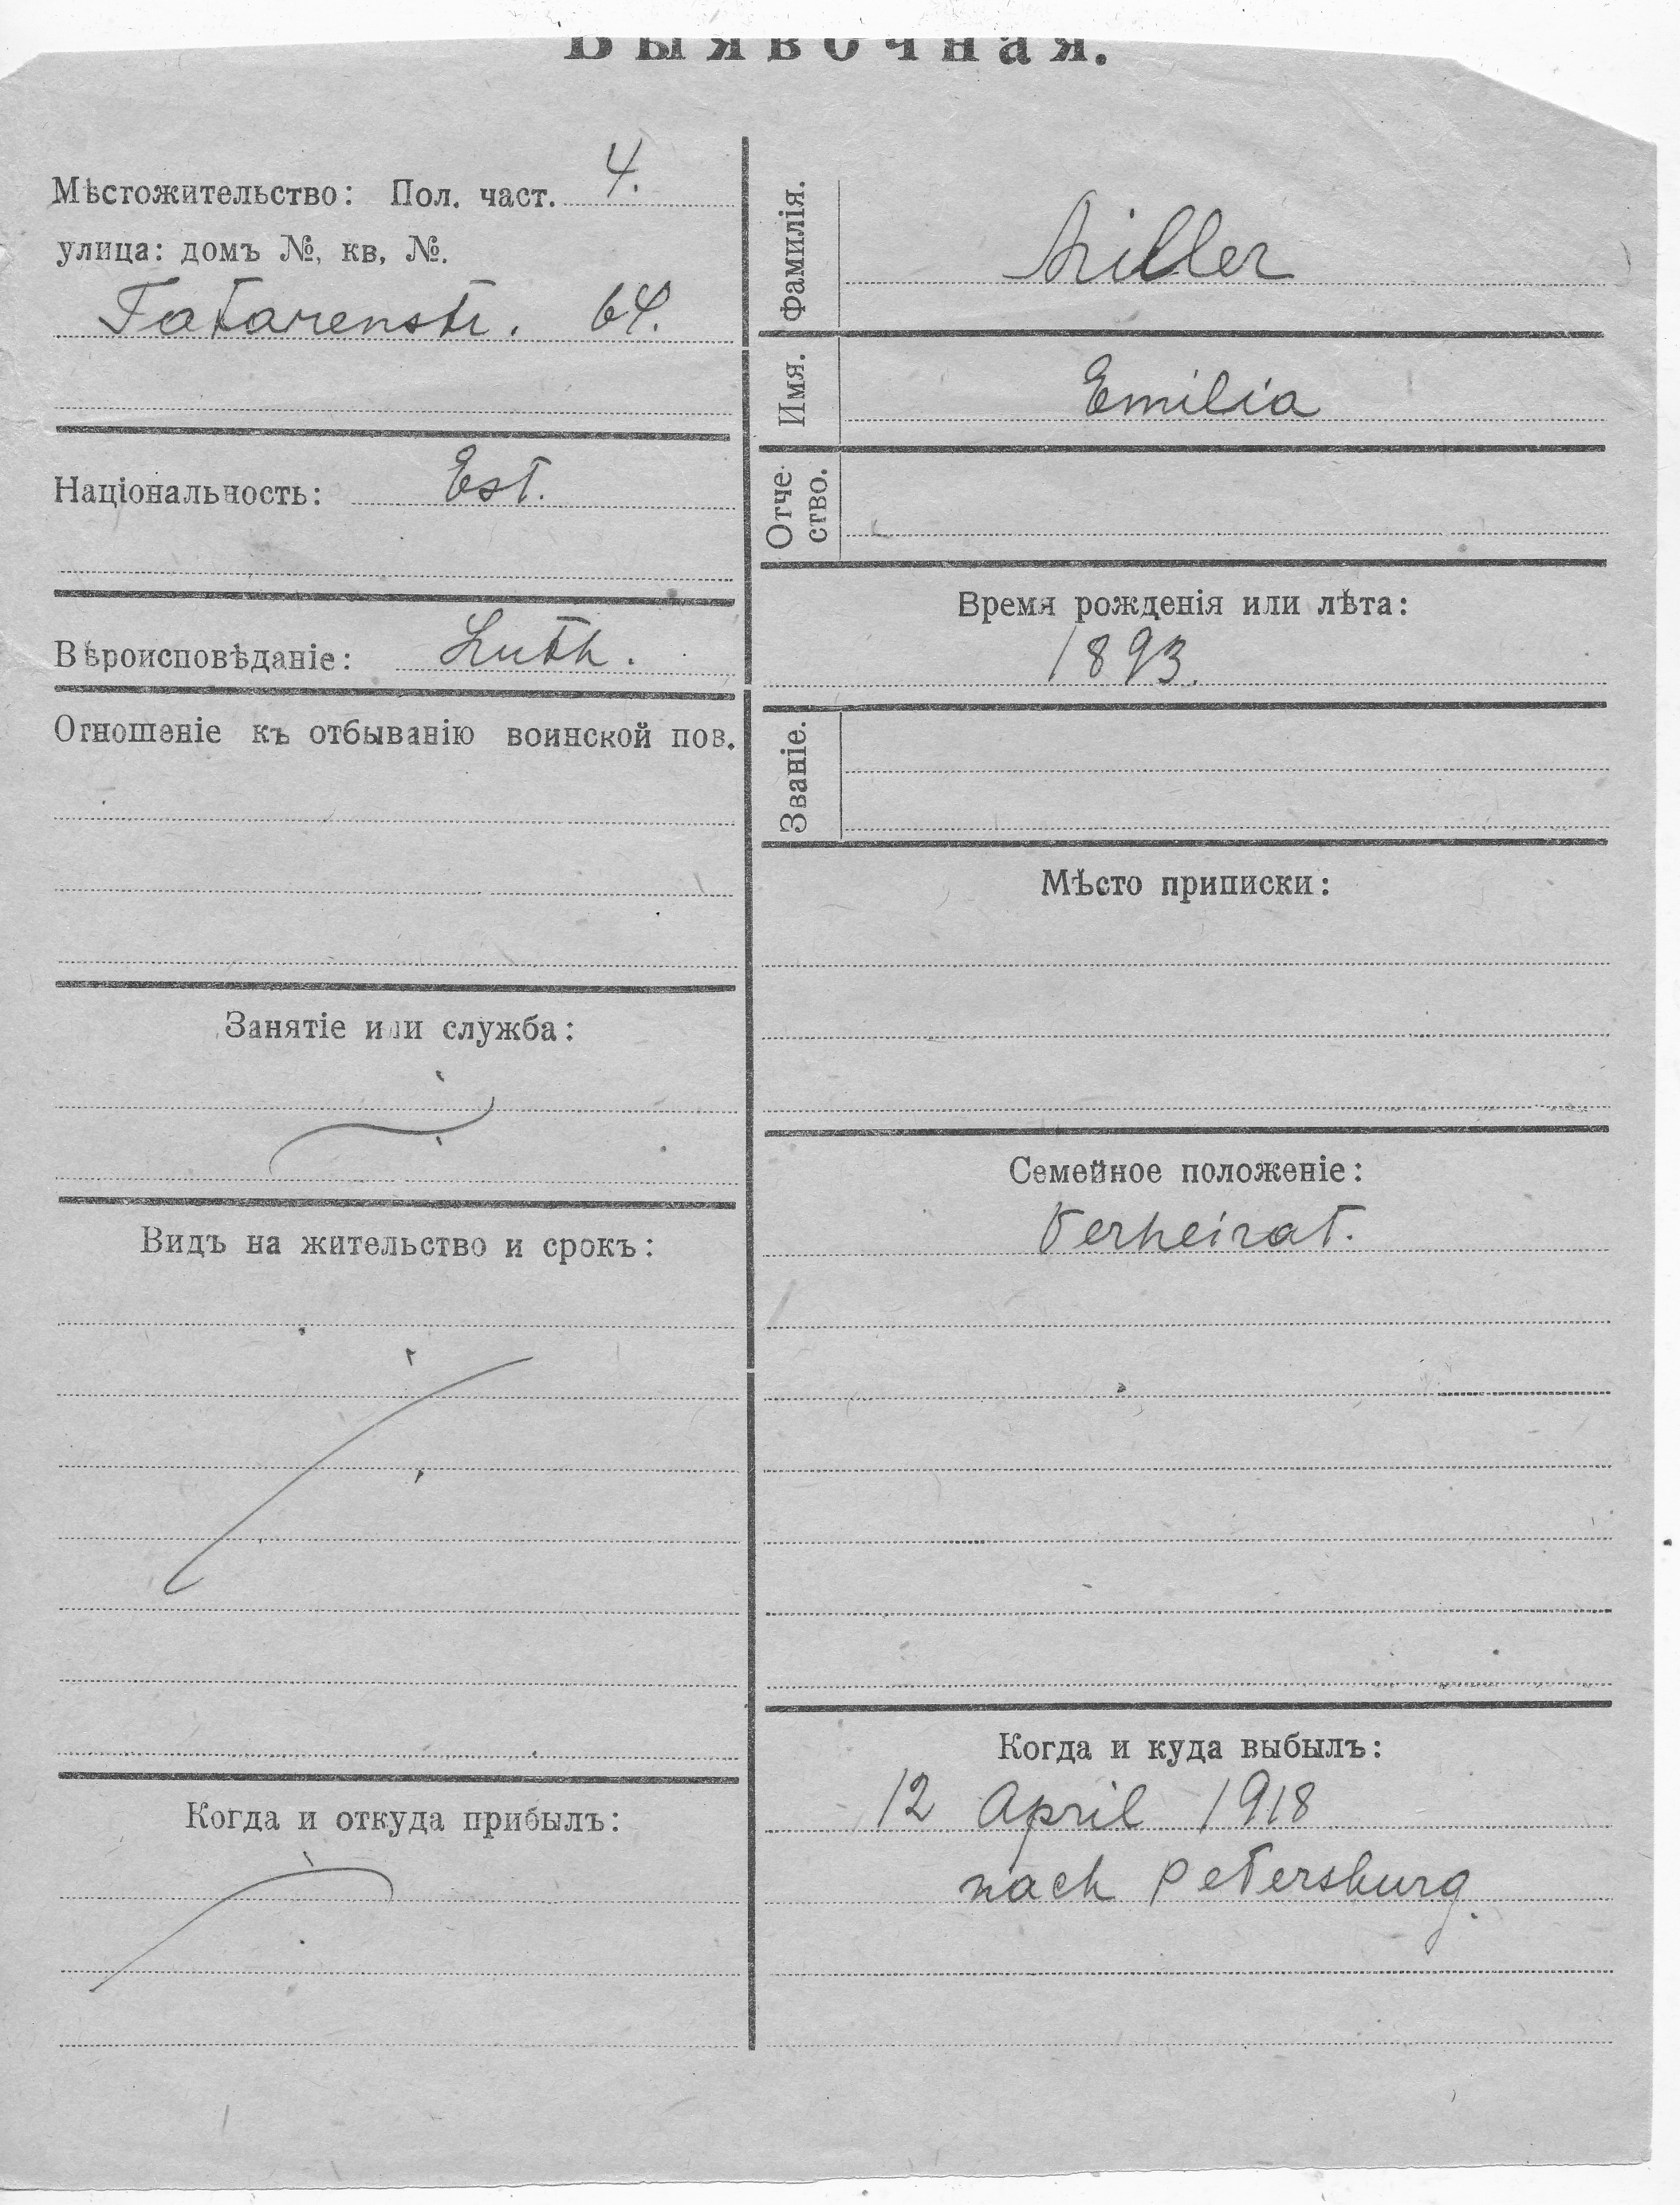 Выявочная.
Мѣстожительство: Пол. част. 4.
улица: домъ №, кв, №.
Tatarenstr. 64.
Національность: Est.
Вѣроисповѣданіе: Luth.
Отношеніе къ отбыванію воинской пов.
Занятіе или служба:
Видъ на жительство и срокъ:
Когда и откуда прибылъ:
Фамилія. Miller
Имя. Emilia
Отче-
ство.
Время рожденія или лѣта:
1893.
Званіе.
Мѣсто приписки:
Семейное положеніе:
Verheirat.
Когда и куда выбылъ:
12 April 1918
nach Petersburg.